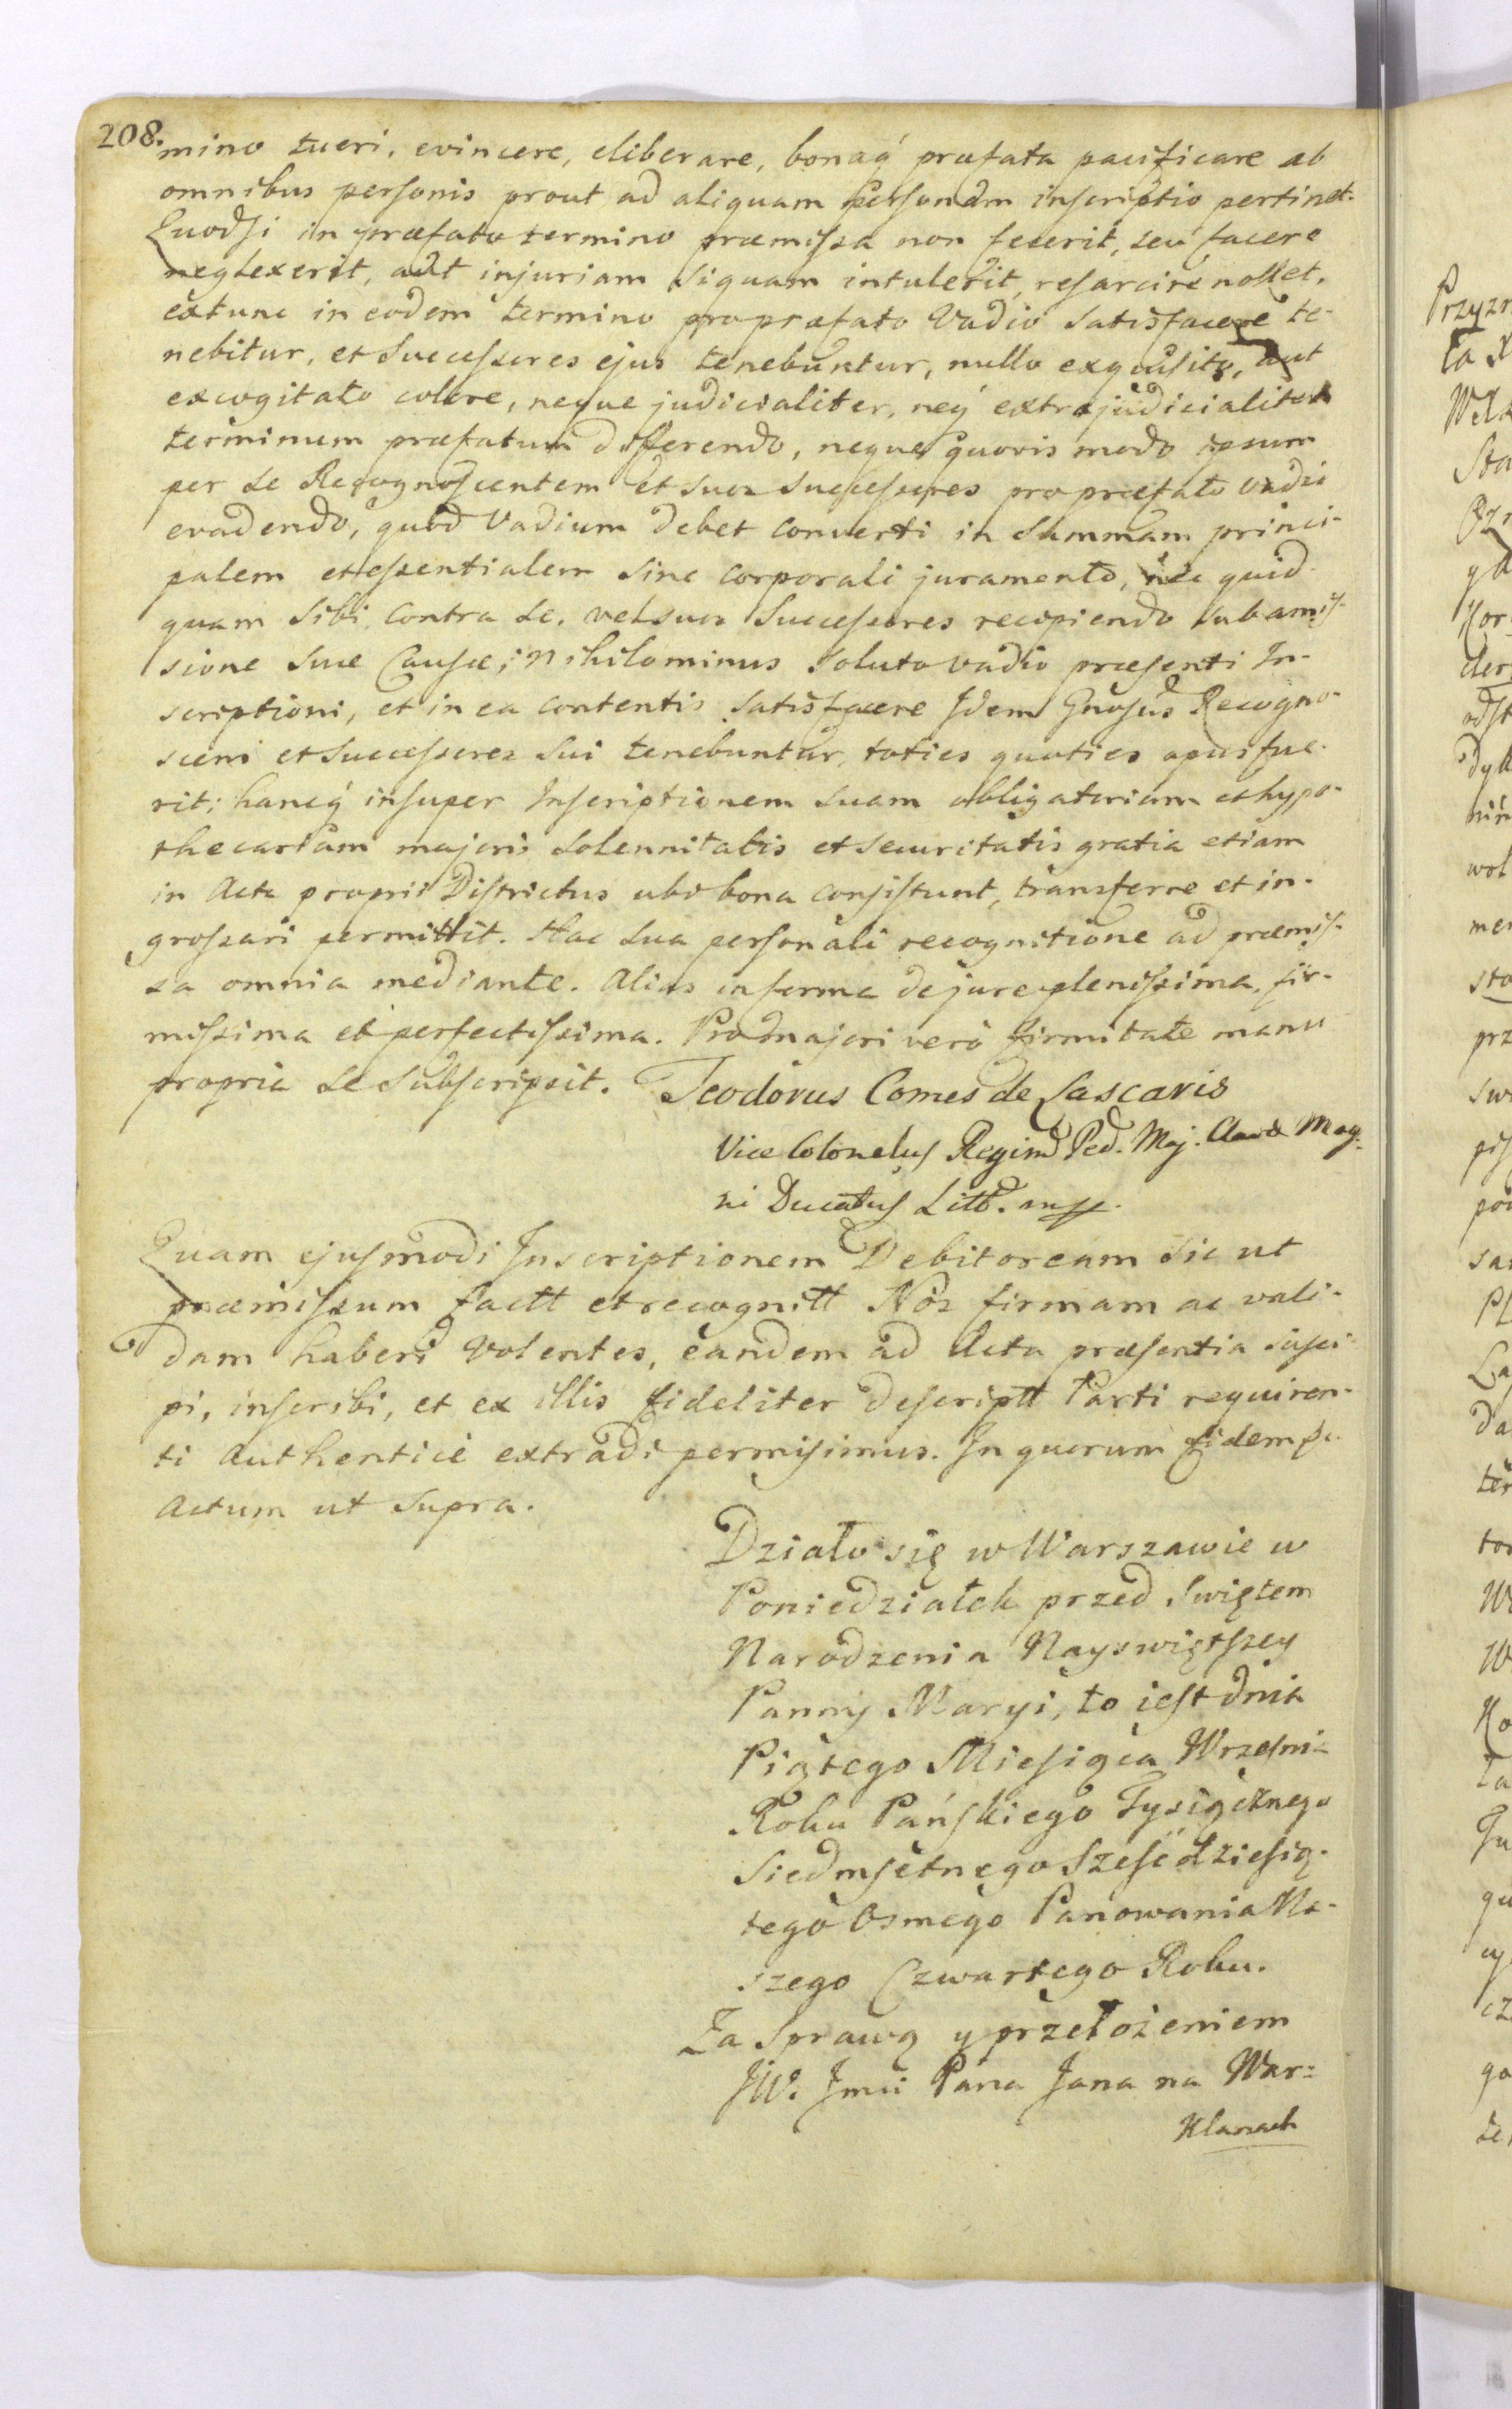 208.
mino tueri, evincere, eliberare, bonaq́ præfata pacificare ab
omnibus personis prout ad aliquam Personam inscriptio pertinet.
Quodsi in præfato termino præmissa non fecerit, seu facere
neglexerit, aut injuriam siquam intulerit, resarcire nollet,
extunc in eodem termino pro præfato Vadio Satisfacere te-
nebitur, et Successores ejus tenebuntur, nullo exquisito, aut
excogitato colore, neque judicialiter, neq́ extrajudicialiter
terminum præfatum differendo, neque quovis modo ipsum
per se Recognoscentem et suos successores pro præfato vadio
evadendo, quod Vadium debet converti in Summam princi-
palem et essentialem sine corporali juramento, nec quid-
quam sibi contra se, vel suos Successores recipiendo sub amis-
sione suæ Causæ; Nihilominus soluto vadio præsenti In-
scriptioni, et in ea contentis satisfacere Idem Gnosus Recogno-
scens et Successores sui tenebuntur, toties quoties opus fue-
rit; hancq́ insuper Inscriptionem suam obligatoriam et hypo-
thecariam majoris solennitatis et securitatis gratia etiam
in Acta proprii Districtus ubi bona consistunt, transferre et in-
grossari permittit. Hac sua personali recognitione ad præmis-
sa omnia mediante. Alias in forma de jure plenissima, fir-
missima et perfectissima. Pro majori vero firmitate manu
propria se subscripsit. Teodorus Comes de Lascaris
Vice Colonelus Regim Ped. Maj. Mag-
ni Ducatus Litt. mpp.
Quam ejusmodi Inscriptionem Debitoream sic ut
præmissum factt et recognitt Nos firmam ac vali-
dam haberi Volentes, eandem ad Acta præsentia susci-
pi, inscribi, et ex illis fideliter descriptt Parti requiren-
ti Authentice extradi permisimus. In quorum fidem
Actum ut Supra.
Działo się w Warszawie w
Poniedziałek przed Swiętem
Narodzenia Nayswiętszey
Panny Maryi, to iest dnia
Piątego Miesiąca Wrzesnia
Roku Pańskiego Tysiącznego
Siedmsetnego Sześćdziesią-
tego Osmego Panowania Na-
szego Czwartego Roku.
Za Sprawą y przełożeniem
JW. Jmci Pana Jana na War=
Klanach